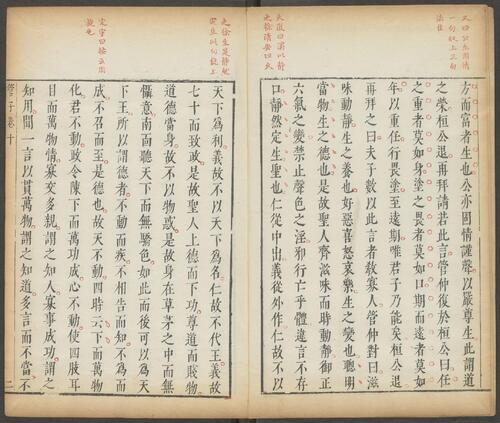 方而富者生也公亦固情謹聲以嚴尊生此謂道
之榮桓公退再拜請若此言管仲復於桓公曰任
之重者莫如身塗之畏者莫如口期而遠者莫如
年以重任行畏塗至遠期唯君子乃能矣桓公退
再拜之曰夫子數以此言者教寡人管仲對曰滋
味動靜生之養也好惡喜怒哀樂生之變也聰明
當物生之德也是故聖人齊滋味而時動靜御正
六氣之變禁止聲色之淫邪行亡乎體違言不存
口靜然定生聖也仁從中出義從外作仁故不以
天下為利義故不以天下為名仁故不代王義故
七十而致政是故聖人上德而下功尊道而賤物
道德當身故不以物惑是故身在草茅之中而無
懾意南面聽天下而無驕色如此而後可以為天
下王所以謂德者不動而疾不相告而知不為而
成不召而至是德也故天不動四時云下而萬物
化君不動政令陳下而萬功成心不動使四肢耳
目而萬物情寡交多親謂之知人寡事成功謂之
知用聞一言以貫萬物謂之知道多言而不當不
管子卷十
二